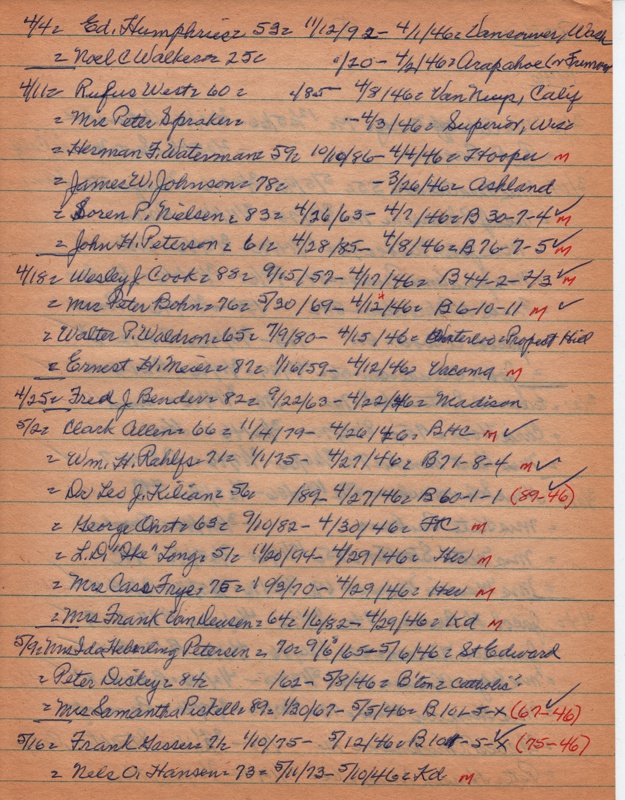 4/4= Ed. Humphries= 53= 11/12/92 - 4/1/46= Vancouver, Wash
= Noel C Walker= 25= /20 - 4/2/46= Arapahoe
4/11= Rufus West= 60= /85 - 4/8/46= Van Nuys, Calif
= Mrs Peter Spraker= - 4/3/46= Superior, Wis=
= Herman F. Waterman= 59= 10/10/86 - 4/4/46= Hooper m
= James W. Johnson= 78= 3/26/46= Ashland
= Soren P. Nielsen= 83= 4/26/63 - 4/7/46= B 30-7-4 ✓ m
= John H. Peterson= 61= 4/28/85 - 4/8/46= B 76-7-5 ✓ m
4/18= Wesley J Cook= 88= 9/15/57 - 4/17/46= B 44-2-2/3 ✓ m
= Mrs Peter Bohn= 76= 5/30/69 - 4/12/46= B 6-10-11 m ✓
= Walter P. Waldron= 65= 7/9/80 - 4/15/46= Prospect Hid
= Ernest H. Meier= 87= 7/16/59 - 4/12/46= m
4/25= Fred J Bender= 82= 9/22/63 - 4/22/46= Madison
5/2= Clark Allen= 66= 11/4/79 - 4/26/46= BHC m ✓
= Wm. H. Rahlfs= 71= 1/1/75 - 4/27/46= B 71-8-4 m ✓
= Dr Leo J. Kilian= 56= /89 - 4/27/46= B 60-1-1 ✓ (89-46)
= George Ohrt= 63= 9/10/82 - 4/30/46= FC m
= L.D. "Ike" Long= 51= 11/20/94 - 4/29/46= Her m
= Mrs Cass Frye= 75= /70 - 4/29/46= Her m
= Mrs Frank Van Deusen= 64= 1/16/82 - 4/29/46= Kd m
5/9= Mrs Ida Heberling Petersen= 70= 9/6/65 - 5/6/46= St Edward
= Peter Dickey= 84= /62 - 5/8/46= B'ton= Catholic?
= Mrs Samantha Pickell= 89= 1/30/67 - 5/5/46= B 101-5-x ✓ (67-46)
5/16= Frank Gasser= 71= 1/10/75 - 5/12/46= B 101-5-x ✓ (75-46)
= Nels O. Hansen= 73= 5/11/73 - 5/10/46= Kd m